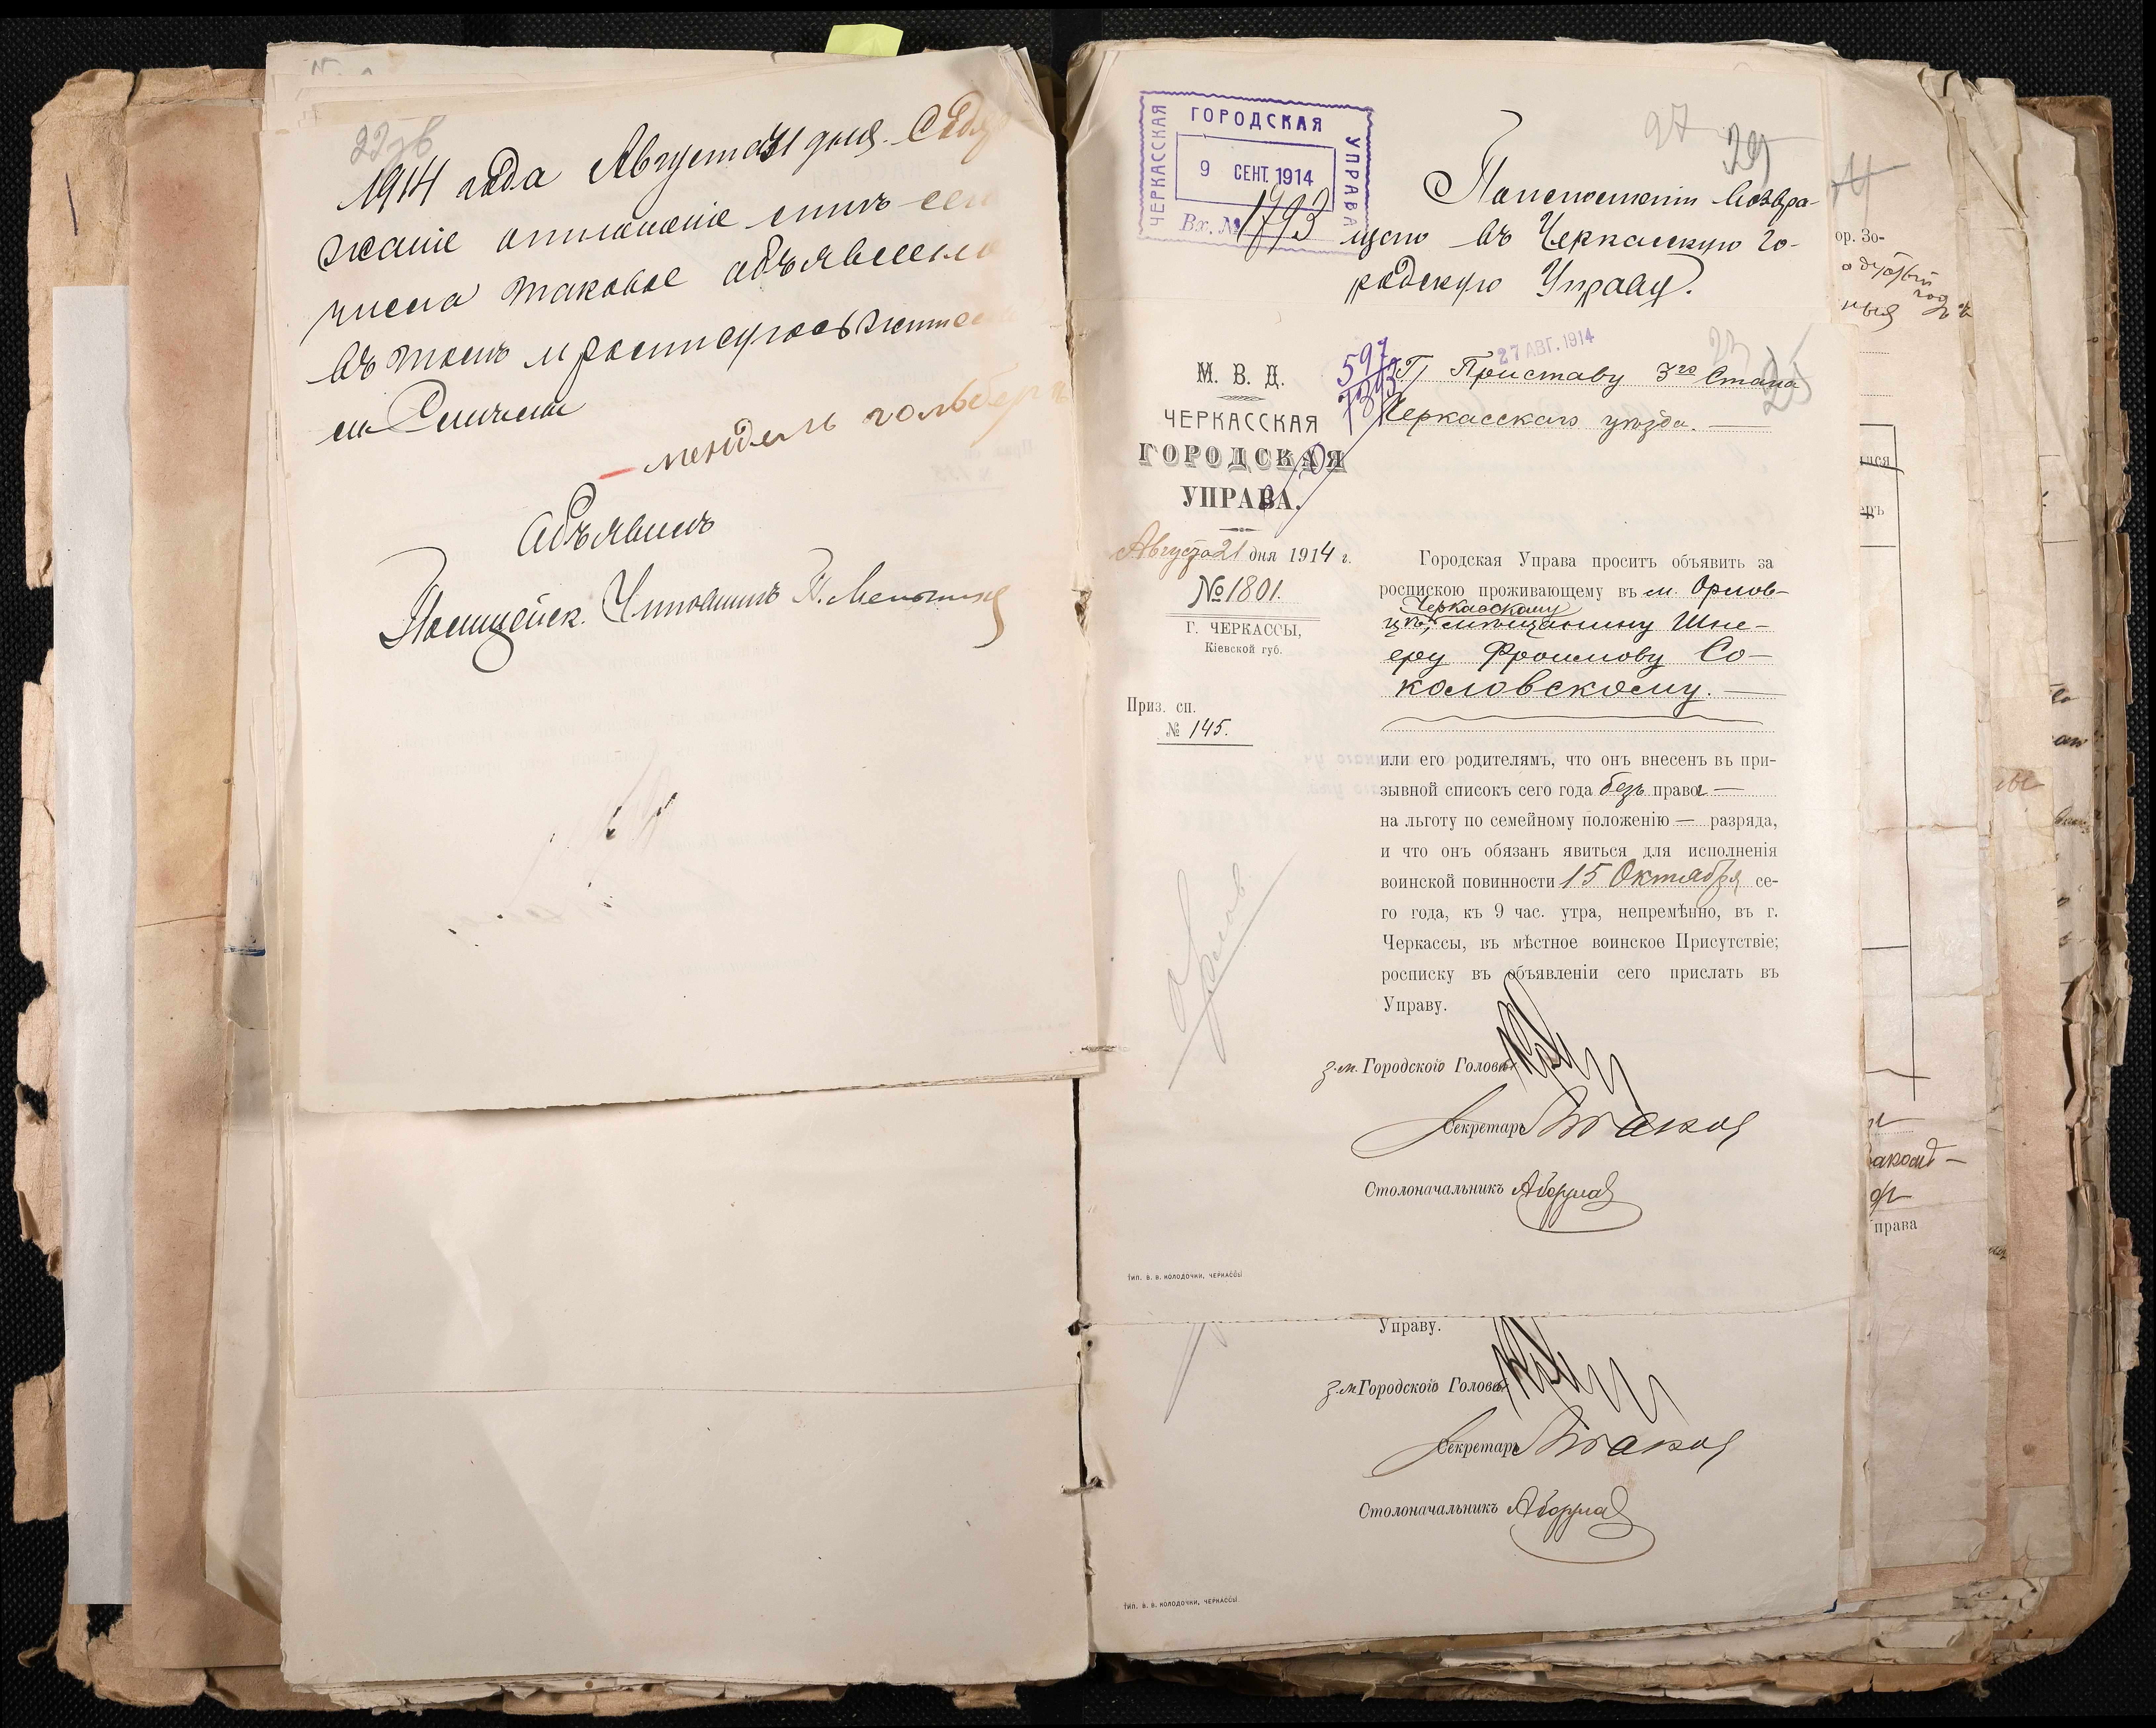 1914 года Августа 31 дня. Содер
жаніе отношенія симъ сего
числа таковое объявлено
въ томъ и росписуюсь жител
м. Смела
мендель гольберг
Объявилъ
Полицейск. Урядникъ
ЧЕРКАССКАЯ
ГОРОДСКАЯ
УПРАВА
9 СЕНТ. 1914
Вх. № 1793
97 29
возвра-
щаю въ Черкасскую Го-
родскую Управу.
М. В. Д.
ЧЕРКАССКАЯ
ГОРОДСКАЯ
УПРАВА.
Августа 21 дня 1914 г.
№ 1801.
Г. ЧЕРКАССЫ,
Кіевской губ.
Приз. сп.
№ 145.
597
27 АВГ. 1914
25
Г. Приставу 3го Стана
Черкасскаго уѣзда. —
Городская Управа проситъ объявить за
роспискою проживающему въ м. Орлов-
Черкасскому
цѣ, мѣщанину Шне-
еру Фроимову Со-
коловскому. —
или его родителямъ, что онъ внесенъ въ при-
зывной списокъ сего года безъ права —
на льготу по семейному положенію — разряда,
и что онъ обязанъ явиться для исполненія
воинской повинности 15 Октября се-
го года, къ 9 час. утра, непремѣнно, въ г.
Черкассы, въ мѣстное воинское Присутствіе;
росписку въ объявленіи сего прислать въ
Управу.
з.м. Городского Головы
Секретарь
Столоначальникъ
ТИП. В. В. КОЛОДОЧКИ, ЧЕРКАССЫ
Управу.
з.м. Городского Головы
Секретарь
Столоначальникъ
ТИП. В. В. КОЛОДОЧКИ, ЧЕРКАССЫ
ор. Зо-
права